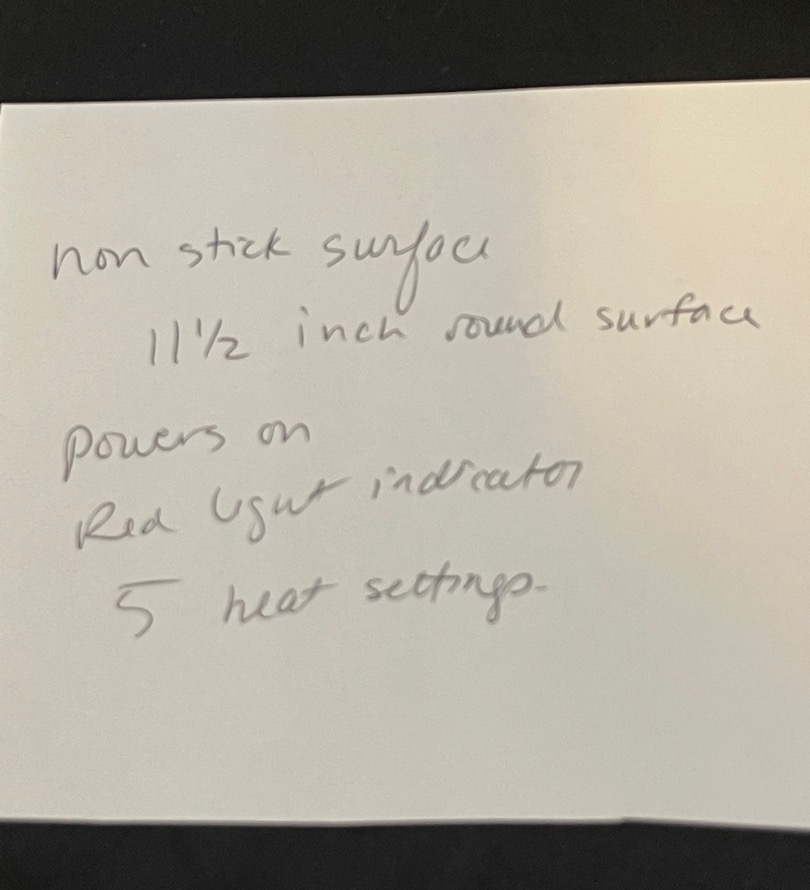 non stick surface
11 1/2 inch round surface
powers on
Red light indicator
5 heat settings.